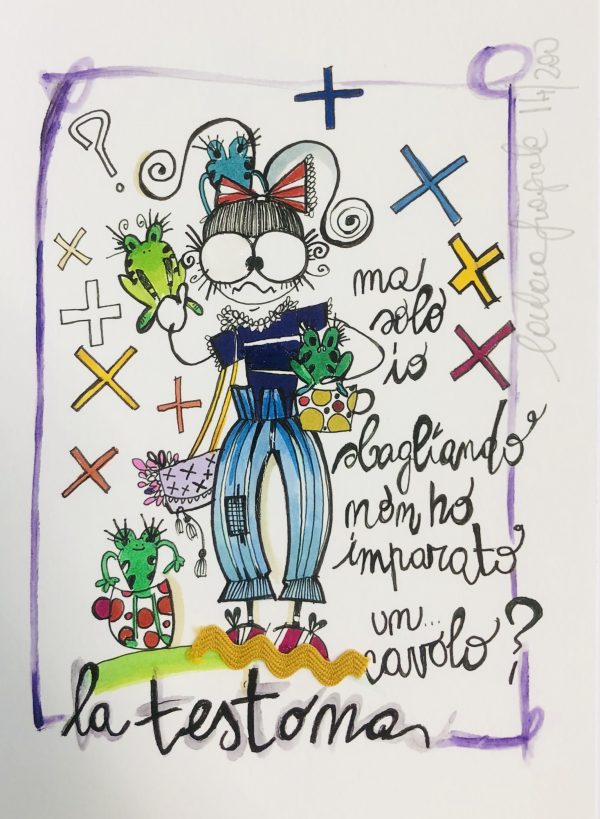 ?
ma
solo
io
sbagliando
non ho
imparato
un...
cavolo?
la testona